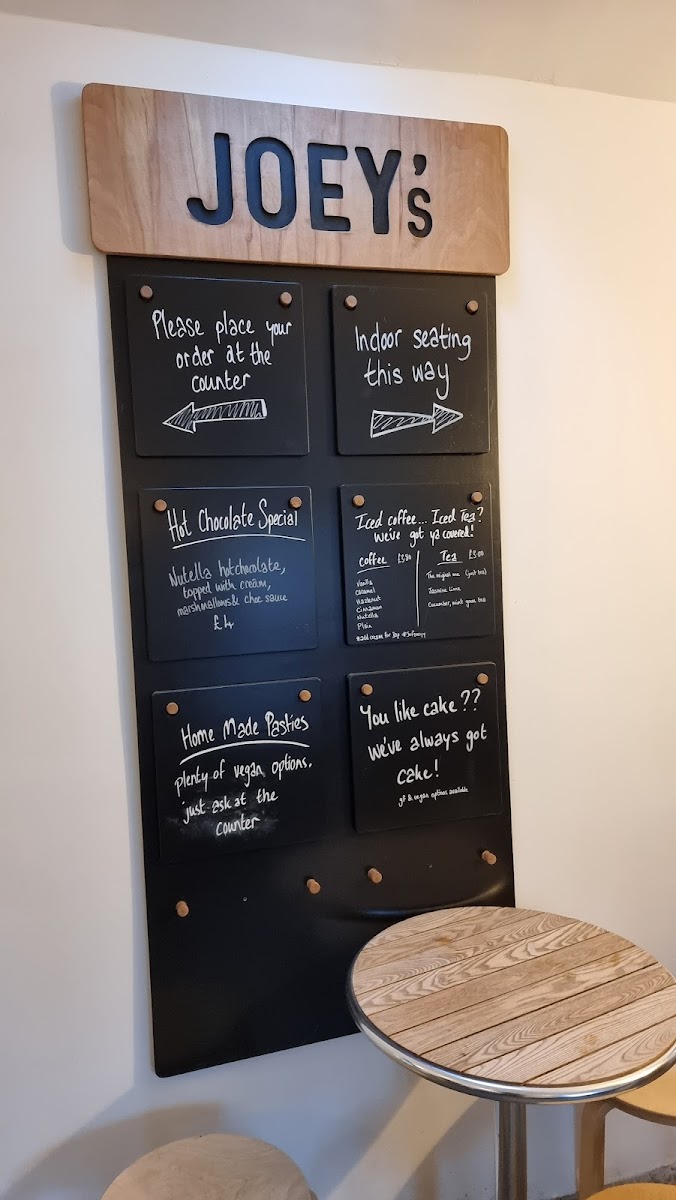 JOEY's
Please place your
order at the
counter
Indoor seating
this way
Hot Chocolate Special
Nutella hot chocolate,
topped with cream,
marshmallows & choc sauce
£4
Iced coffee... Iced Tea?
We've got ya covered!
Coffee £3.80
Vanilla
Caramel
Hazelnut
Cinnamon
Nutella
Plain
Tea £3.00
The original one (just tea)
Jasmine Lime
Cucumber, mint green tea
#add cream for 30p
Home Made Pasties
plenty of vegan options.
just ask at the
counter
You like cake??
We've always got
cake!
gf & vegan options available